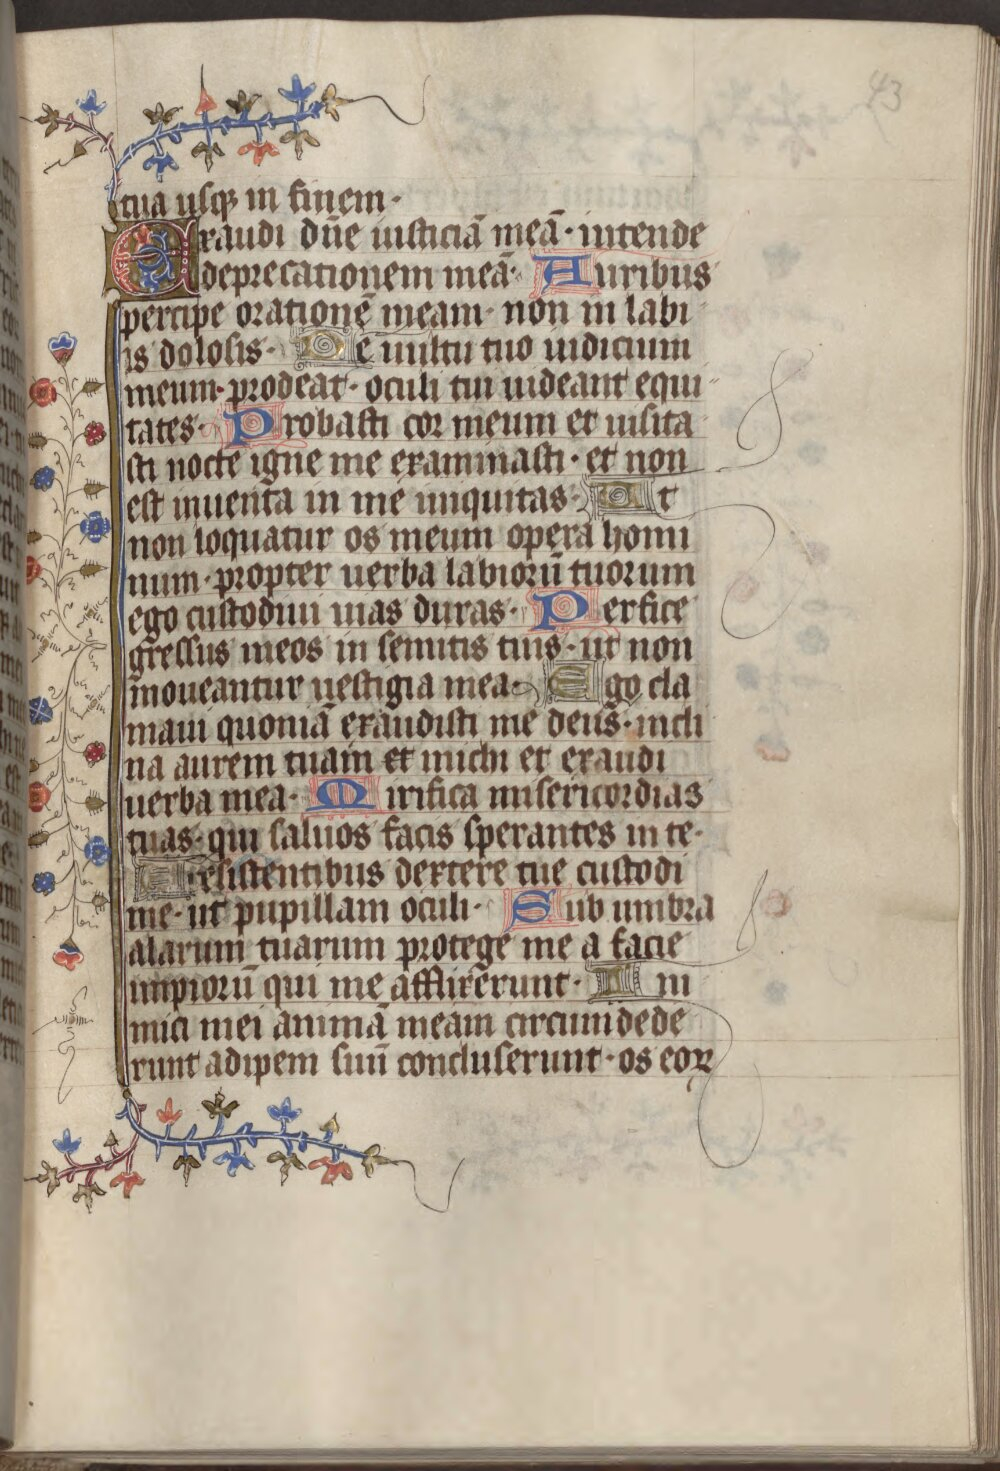 43
tua usqꝫ in finem·
Exaudi dn̄e iusticiā meā· intende
deprecationem meā· Auribus
percipe orationē meam· non in labi
is dolosis· De uultu tuo iudicium
meum· prodeat· oculi tui uideant equi
tates· Probasti cor meum et uisita
sti nocte igne me examinasti· et non
est inuenta in me iniquitas· Ut
non loquatur os meum opera homi
num· propter uerba labiorū tuorum
ego custodiui uias duras· Perfice
gressus meos in semitis tuis· ut non
moueantur uestigia mea· Ego cla
maui quoniā exaudisti me deus· incli
na aurem tuam et michi et exaudi
uerba mea· Mirifica misericordias
tuas· qui saluos facis sperantes in te·
Resistentibus dextere tue custodi
me· ut pupillam oculi· Sub umbra
alarum tuarum protege me a facie
impiorū qui me afflixerunt· Ini
mici mei animā meam circumdede
runt adipem suū concluserunt· os eoꝝ